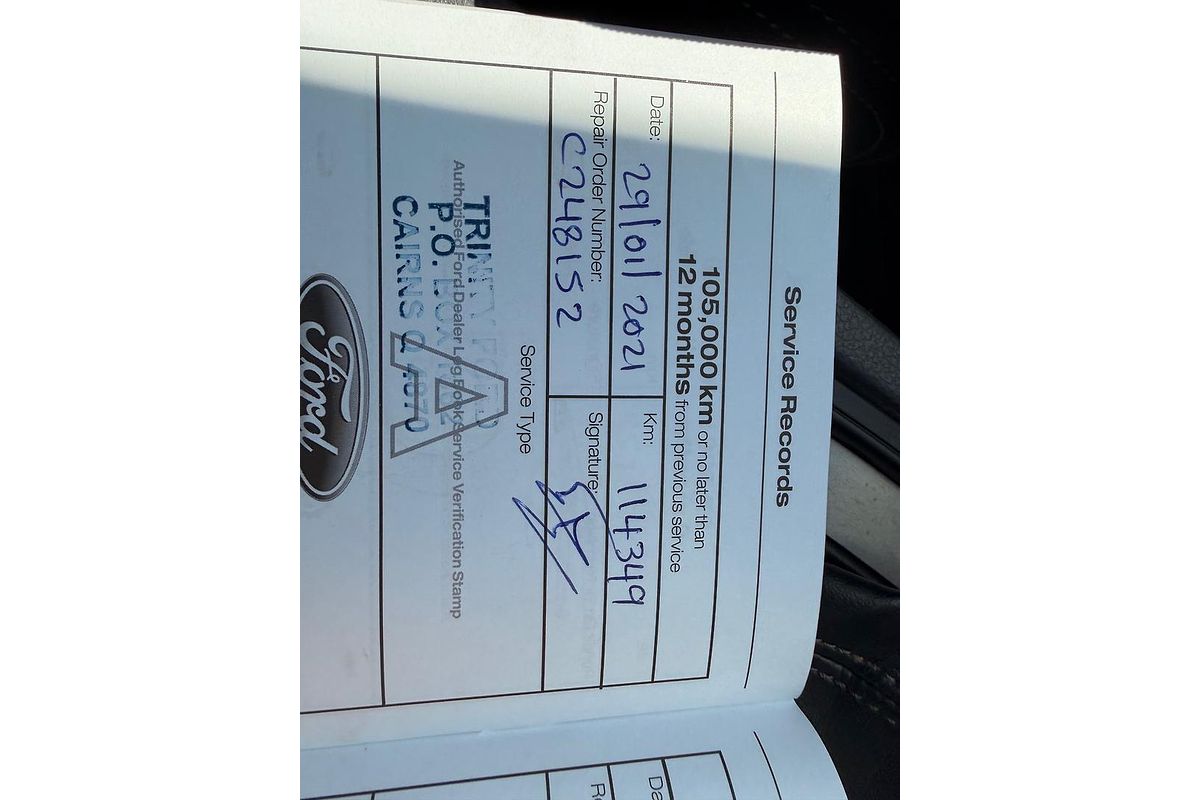 Service Records
105,000 km or no later than
12 months from previous service
Date: 29/01/2021
Km: 114349
Repair Order Number:
C248152
Signature:
Service Type
A
TRINITY FORD
P.O. BOX
CAIRNS Q 4870
Authorised Ford Dealer Log Book Service Verification Stamp
Ford